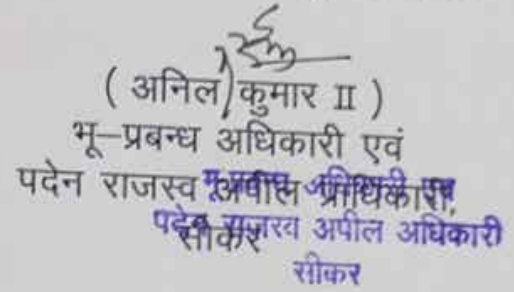 ( अनिल कुमार II )
भू–प्रबन्ध अधिकारी एवं
पदेन राजस्व अपील प्राधिकारी,
सीकर
भू प्रबन्ध अधिकारी एवं
पदेन राजस्व अपील अधिकारी
सीकर